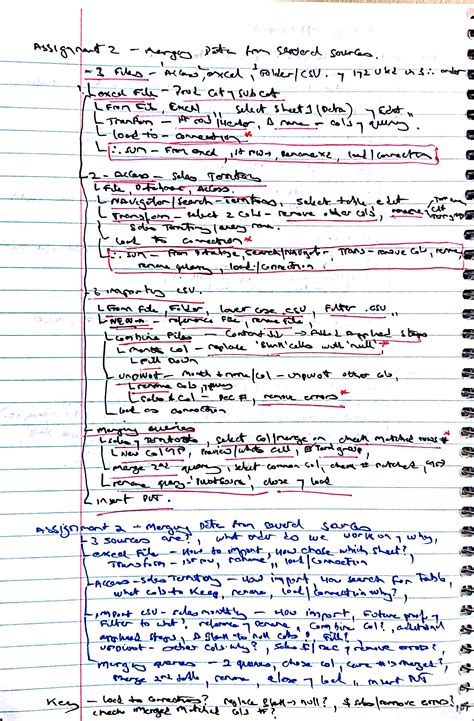 Assignment 2 - Merging Data from several sources.
- 3 Files - Access, excel, Folder/CSV.
1. excel File - Prod Cat & Subcat
From File, Excel, select Sheet 1 (Data) & Edit
Transform - 1st row/Header, Δ name - cols & query.
load to - connection *
∴ sum - From excel, 1st row, Rename x2, load/connection
2 - Access - Sales Territory
File, Database, Access.
Navigator/Search - territory, select table edit
Transform - select 2 cols - remove other cols, rename
Sales Territory/query name.
load to connection *
∴ sum - From database, Search/Navigator, Trans - remove cols, rename,
rename query, load/connection.
- 3 importing CSV.
From File, Folder, lower case csv, Filter .csv
- reference File, rename File,
Combine Files - Content → Adds 2 applied steps
Months col - replace 'Blank' cells with 'null' *
Fill Down
- unpivot - month + name/col - unpivot other cols,
rename cols, query
Sales Col - Dec #, remove errors *
load as connection
- Merging queries
Sales & Territory, select col/merge on check matched rows *
New Col, white cell,
merge 2nd query, select common col, check # matched
rename query 'Pivot Source', close & load
insert PVT.
Assignment 2 - Merging Data from several sources
- 3 sources are?, what order do we work on & why,
- excel File - How to import, How chose which sheet?,
Transform - 1st row, rename, load/connection
- Access - Sales Territory - How import, How search for Table,
what cols to Keep, rename, load/connection why?,
- import CSV - sales monthly - How import, Future prof, &
Filter to what?, reference & rename, Combine Col?, additional
applied steps, Δ Blank to null cols?, Fill?
unpivot - other cols why?, sales $/Dec & remove error?
Merging queries - 2 queries, chose col, merged?,
Merge 2nd table, rename, close & load, insert PVT
Key - load to connections? replace Blank → null?, $ sales/remove error?
check Merged Matched cols #?